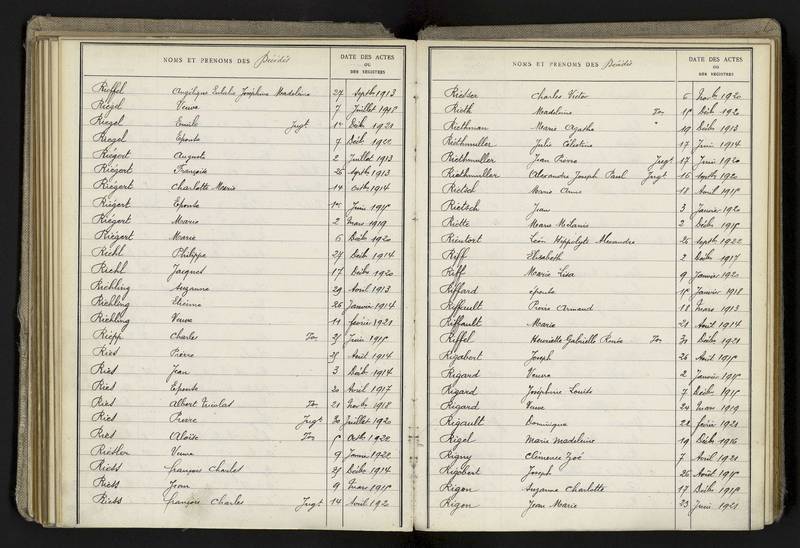 NOMS ET PRÉNOMS DES Décédés
DATE DES ACTES
OU
DES REGISTRES
Rieffel Angélique Eulalie Joséphine Madeleine 27 Septbre 1913
Riegel Veuve 7 Juillet 1915
Riegel Emile Jugt 1er Décbre 1921
Riegel Epouse 7 Décbre 1920
Riégert Auguste 2 Juillet 1913
Riégert François 25 Septbre 1913
Riégert Charlotte Marie 14 Octbre 1914
Riégert Epouse 1er Juin 1915
Riégert Marie 2 Mars 1919
Riégert Marie 6 Décbre 1920
Riehl Philippe 27 Décbre 1914
Riehl Jacques 17 Décbre 1920
Riehling Suzanne 29 Avril 1913
Riehling Etienne 26 Janvier 1914
Riehling Veuve 11 février 1921
Riepp Charles Ton 25 Juin 1915
Ries Pierre 25 Août 1914
Ries Jean 3 Décbre 1914
Ries Epouse 20 Avril 1917
Ries Albert Nicolas Ton 21 Novbre 1918
Ries Pierre Jugt 30 Juillet 1920
Ries Aloïse Ton 5 Octbre 1920
Riesler Veuve 9 Janvier 1922
Riess françois Charles 25 Décbre 1914
Riess Jean 9 Mars 1915
Riess françois Charles Jugt 14 Avril 1920
NOMS ET PRÉNOMS DES Décédés
DATE DES ACTES
OU
DES REGISTRES
Riester Charles Victor 6 Novbre 1920
Rieth Madeleine Ton 15 Décbre 1920
Riethman Marie Agathe " 19 Décbre 1913
Riethmuller Julie Célestine 17 Juin 1914
Riethmuller Jean Pierre Jugt 17 Juin 1920
Riethmuller Alexandre Joseph Paul Jugt 16 Septbre 1920
Rietsch Marie Anne 18 Avril 1915
Rietsch Jean 3 Janvier 1920
Riette Marie Mélanie 2 Décbre 1915
Rieutort Léon Hippolyte Alexandre 26 Septbre 1922
Riff Elisabeth 2 Décbre 1917
Riff Marie Lisa 9 Janvier 1920
Riffard épouse 15 Janvier 1918
Riffault Pierre Armand 18 Mars 1913
Riffault Marie 21 Août 1914
Riffel Henriette Gabrielle Renée Ton 30 Décbre 1921
Rigabert Joseph 26 Août 1915
Rigard Veuve 2 Janvier 1915
Rigard Joséphine Louise 7 Décbre 1915
Rigard Veuve 24 Mars 1919
Rigault Dominique 22 févier 1921
Rigel Marie Madeleine 19 Décbre 1916
Rigny Clémence Zoé 7 Avril 1921
Rigobert Joseph 26 Août 1915
Rigon Suzanne Charlotte 17 Décbre 1915
Rigon Jean Marie 23 Juin 1921